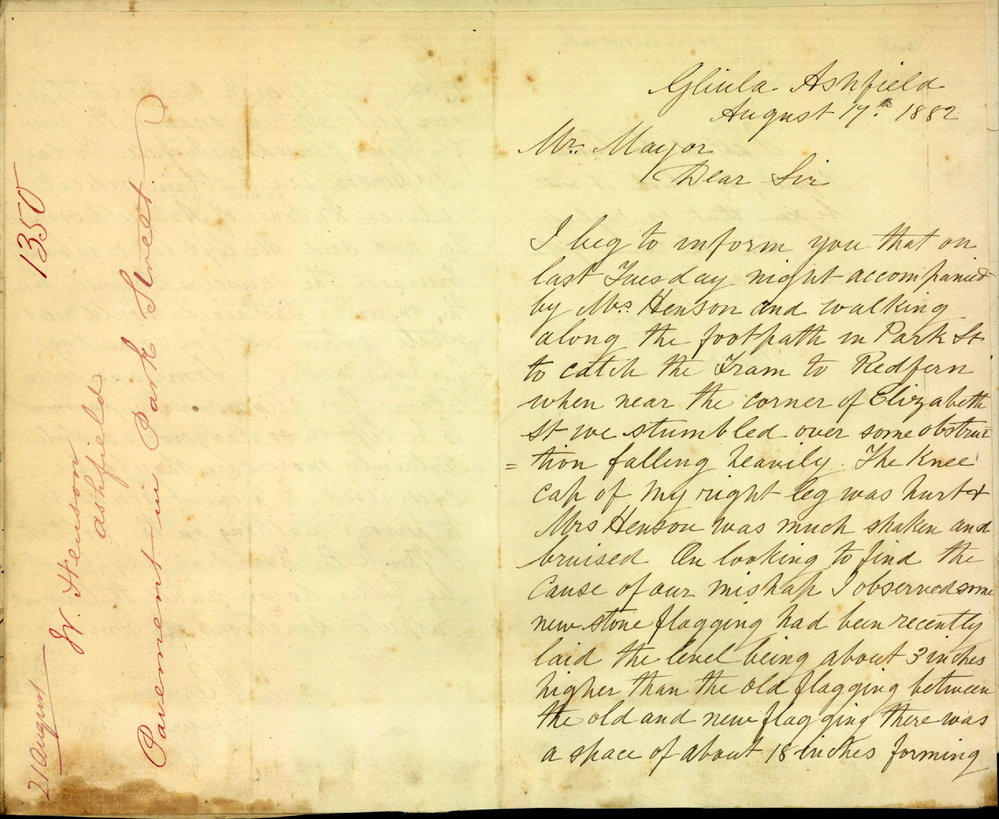 1350
21 August
W. Henson
Ashfield
Pavement in Park Street
Gliula Ashfield
August 17.th 1882
Mr. Mayor
Dear Sir
I beg to inform you that on
last Tuesday night accompanied
by Mrs. Henson and walking
along the footpath in Park St
to catch the Tram to Redfern
when near the corner of Elizabeth
St we stumbled over some obstruc
=tion falling heavily. The Knee
cap of my right leg was hurt &
Mrs Henson was much shaken and
bruised On looking to find the
Cause of our mishap I observed some
new stone flagging had been recently
laid the level being about 3 inches
higher than the old flagging between
the old and new flagging there was
a space of about 18 inches forming